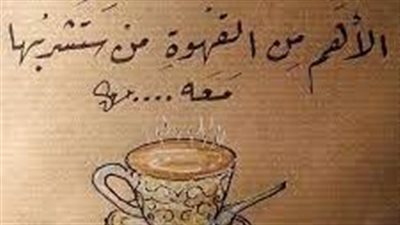 الأهَم مِن القَهْوةِ مَن سَتَشربُها
مَعَه....